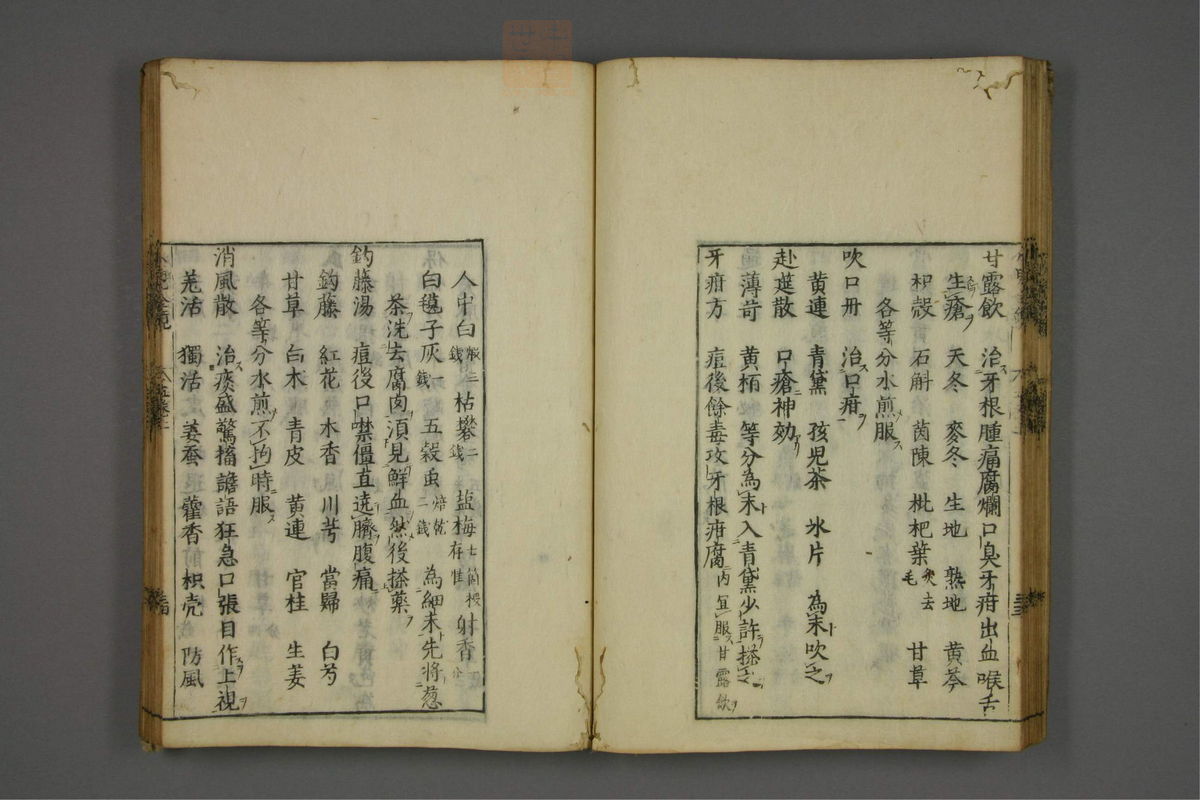 甘露飲　治牙根腫痛腐爛口臭牙疳出血喉舌
生瘡　天冬　麥冬　生地　熟地　黄芩
枳殼　石斛　茵陳　枇杷葉炙去毛　甘草
各等分水煎服
吹口丹　治口疳
黄連　青黛　孩児茶　氷片　為末吹之
赴筵散　口瘡神効
薄荷　黄栢　等分為末入青黛少許搽之
牙疳方　痘後餘毒攻牙根疳腐内宜服甘露飲
人中白煅三錢　枯礬二錢　塩梅七箇　存性　射香
白毯子灰一錢　五穀虫焙乾二錢　為細末先将葱
茶洗去腐肉須見鮮血然後搽薬
鈎藤湯　痘後口噤僵直遶臍腹痛
鈎藤　紅花　木香　川芎　當歸　白芍
甘草　白木　青皮　黄連　官桂　生姜
各等分水煎不拘時服
消風散　治痰盛驚搐譫語狂急口張目作上視
羌活　獨活　姜蚕　藿香　枳壳　防風